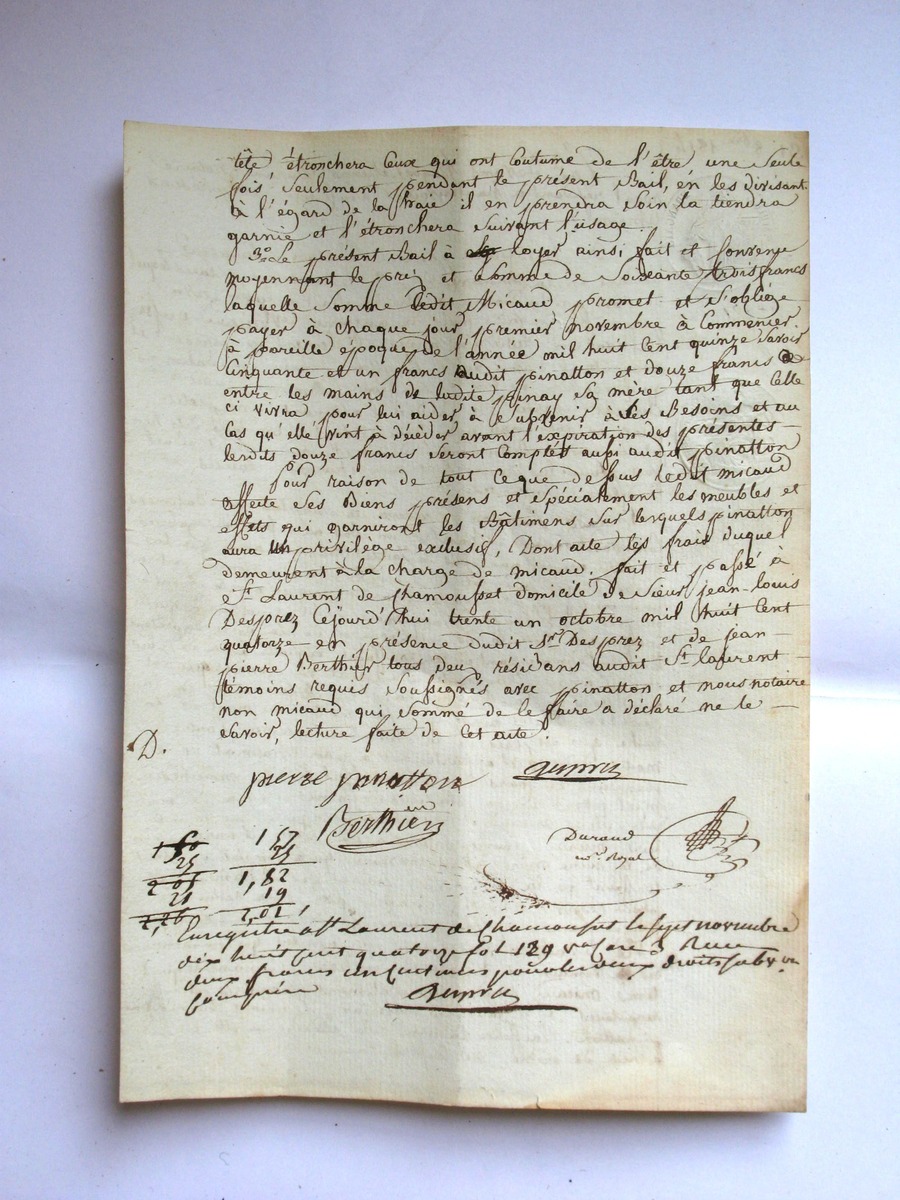 tête étronchera Ceux qui ont Coutume de l'être une Seule
fois Seulement pendant le présent Bail, en les divisant.
à l'égard de la haie il en prendra soin la tiendra
garnie et l'étronchera Suivant l'usage.
3o. Le présent Bail à loyer ainsi fait et Convenu
moyennant le prix et Somme de Soixante trois francs
laquelle Somme ledit Micaud promet et S'oblige
payer à Chaque jour premier novembre à Commencer
à pareille époque de l'année mil huit Cent quinze Savoir
Cinquante et un francs audit pinatton et douze francs
entre les mains de ladite pinay Sa mère tant que Celle
ci vivra, pour lui aider à Subvenir à Ses Besoins et au
Cas qu'elle vint à décéder avant l'expiration des présentes
lesdits douze francs Seront Comptés aussi audit pinatton
Pour raison de tout Ceque dessus ledit micaud
affecte Ses Biens présens et Spécialement les meubles et
effets qui garniront les Bâtimens Sur lesquels pinatton
aura un privilège exclusif, Dont acte les frais duquel
demeurent à la charge de micaud. fait et passé à
St. Laurent de Chamousset domicile de Sieur jean-louis
Desprez Cejourd'hui trente un octobre mil huit Cent
quatorze en présence dudit Sr. Desprez et de jean
pierre Berthier tous deux résidans audit St. laurent
témoins requis Soussignés avec pinatton et nous notaire
non micaud qui Sommé de le faire a déclaré ne le
Savoir, lecture faite de Cet acte.
D.
pierre pinatton
Berthier
Durand
nre. Royal
157
25
1,82
19
2,01
Enregistré à St Laurent de Chamousset le Sept novembre
dix huit Cent quatorze fol 129 Reçu
deux francs un Centimes pour les deux droits